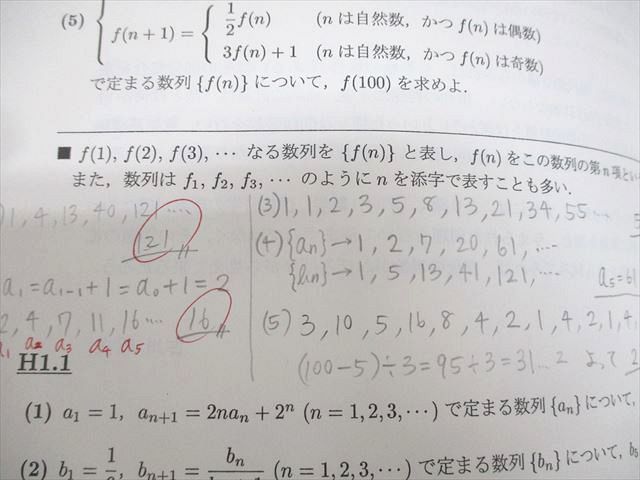 (5) { f(n+1) = { 1/2 f(n) (n は自然数，かつ f(n) は偶数)
3f(n)+1 (n は自然数，かつ f(n) は奇数)
で定まる数列 {f(n)} について，f(100) を求めよ．
■ f(1), f(2), f(3), ⋯ なる数列を {f(n)} と表し，f(n) をこの数列の第 n 項とい
また，数列は f₁, f₂, f₃, ⋯ のように n を添字で表すことも多い．
1, 4, 13, 40, 121 ⋯
121
a₁ = a₁₋₁+1 = a₀+1 = 2
2, 4, 7, 11, 16 ⋯ 16
a₁ a₂ a₃ a₄ a₅
(3) 1, 1, 2, 3, 5, 8, 13, 21, 34, 55 ⋯
(4) {an} → 1, 2, 7, 20, 61, ⋯
{bn} → 1, 5, 13, 41, 121, ⋯
a₅=61
(5) 3, 10, 5, 16, 8, 4, 2, 1, 4, 2, 1, 4,
(100-5)÷3=95÷3=31…2 よって 2
H1.1
(1) a₁ = 1, aₙ₊₁ = 2naₙ + 2ⁿ (n = 1, 2, 3, ⋯) で定まる数列 {aₙ} について，
(2) b₁ = 1/ , bₙ₊₁ = bₙ/ (n = 1, 2, 3, ⋯) で定まる数列 {bₙ} について，b₅